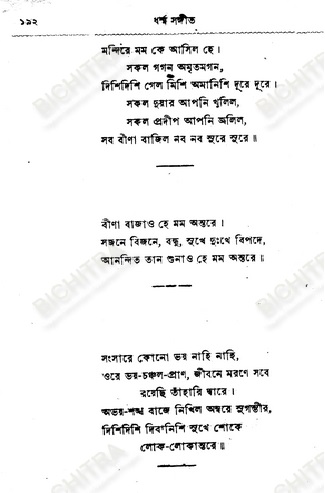 ১৯২ ধর্ম্ম সঙ্গীত
মন্দিরে মম কে আসিল হে।
সকল গগন অমৃতমগন,
দিশিদিশি গেল মিশি অমানিশি দূরে দূরে।
সকল দুয়ার আপনি খুলিল,
সকল প্রদীপ আপনি জ্বলিল,
সব বীণা বাজিল নব নব সুরে সুরে॥
বীণা বাজাও হে মম অন্তরে।
সজনে বিজনে, বন্ধু, সুখে দুঃখে বিপদে,
আনন্দিত তান শুনাও হে মম অন্তরে॥
সংসারে কোনো ভয় নাহি নাহি,
ওরে ভয়-চঞ্চল-প্রাণ, জীবনে মরণে সবে
রয়েছি তাঁহারি দ্বারে।
অভয়-শঙ্খ বাজে নিখিল অম্বরে সুগম্ভীর,
দিশিদিশি দিবানিশি সুখে শোকে
লোক-লোকান্তরে॥
BICHITRA
BICHITRA
BICHITRA
BICHITRA
BICHITRA
BICHITRA